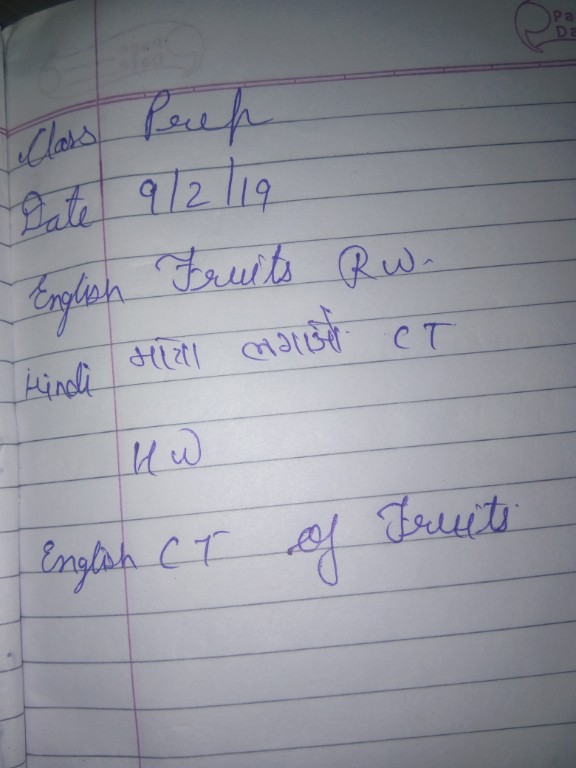 Class Prep
Date 9/2/19
English Fruits R W.
Hindi मात्रा लगाओ CT
H W
English CT of Fruits